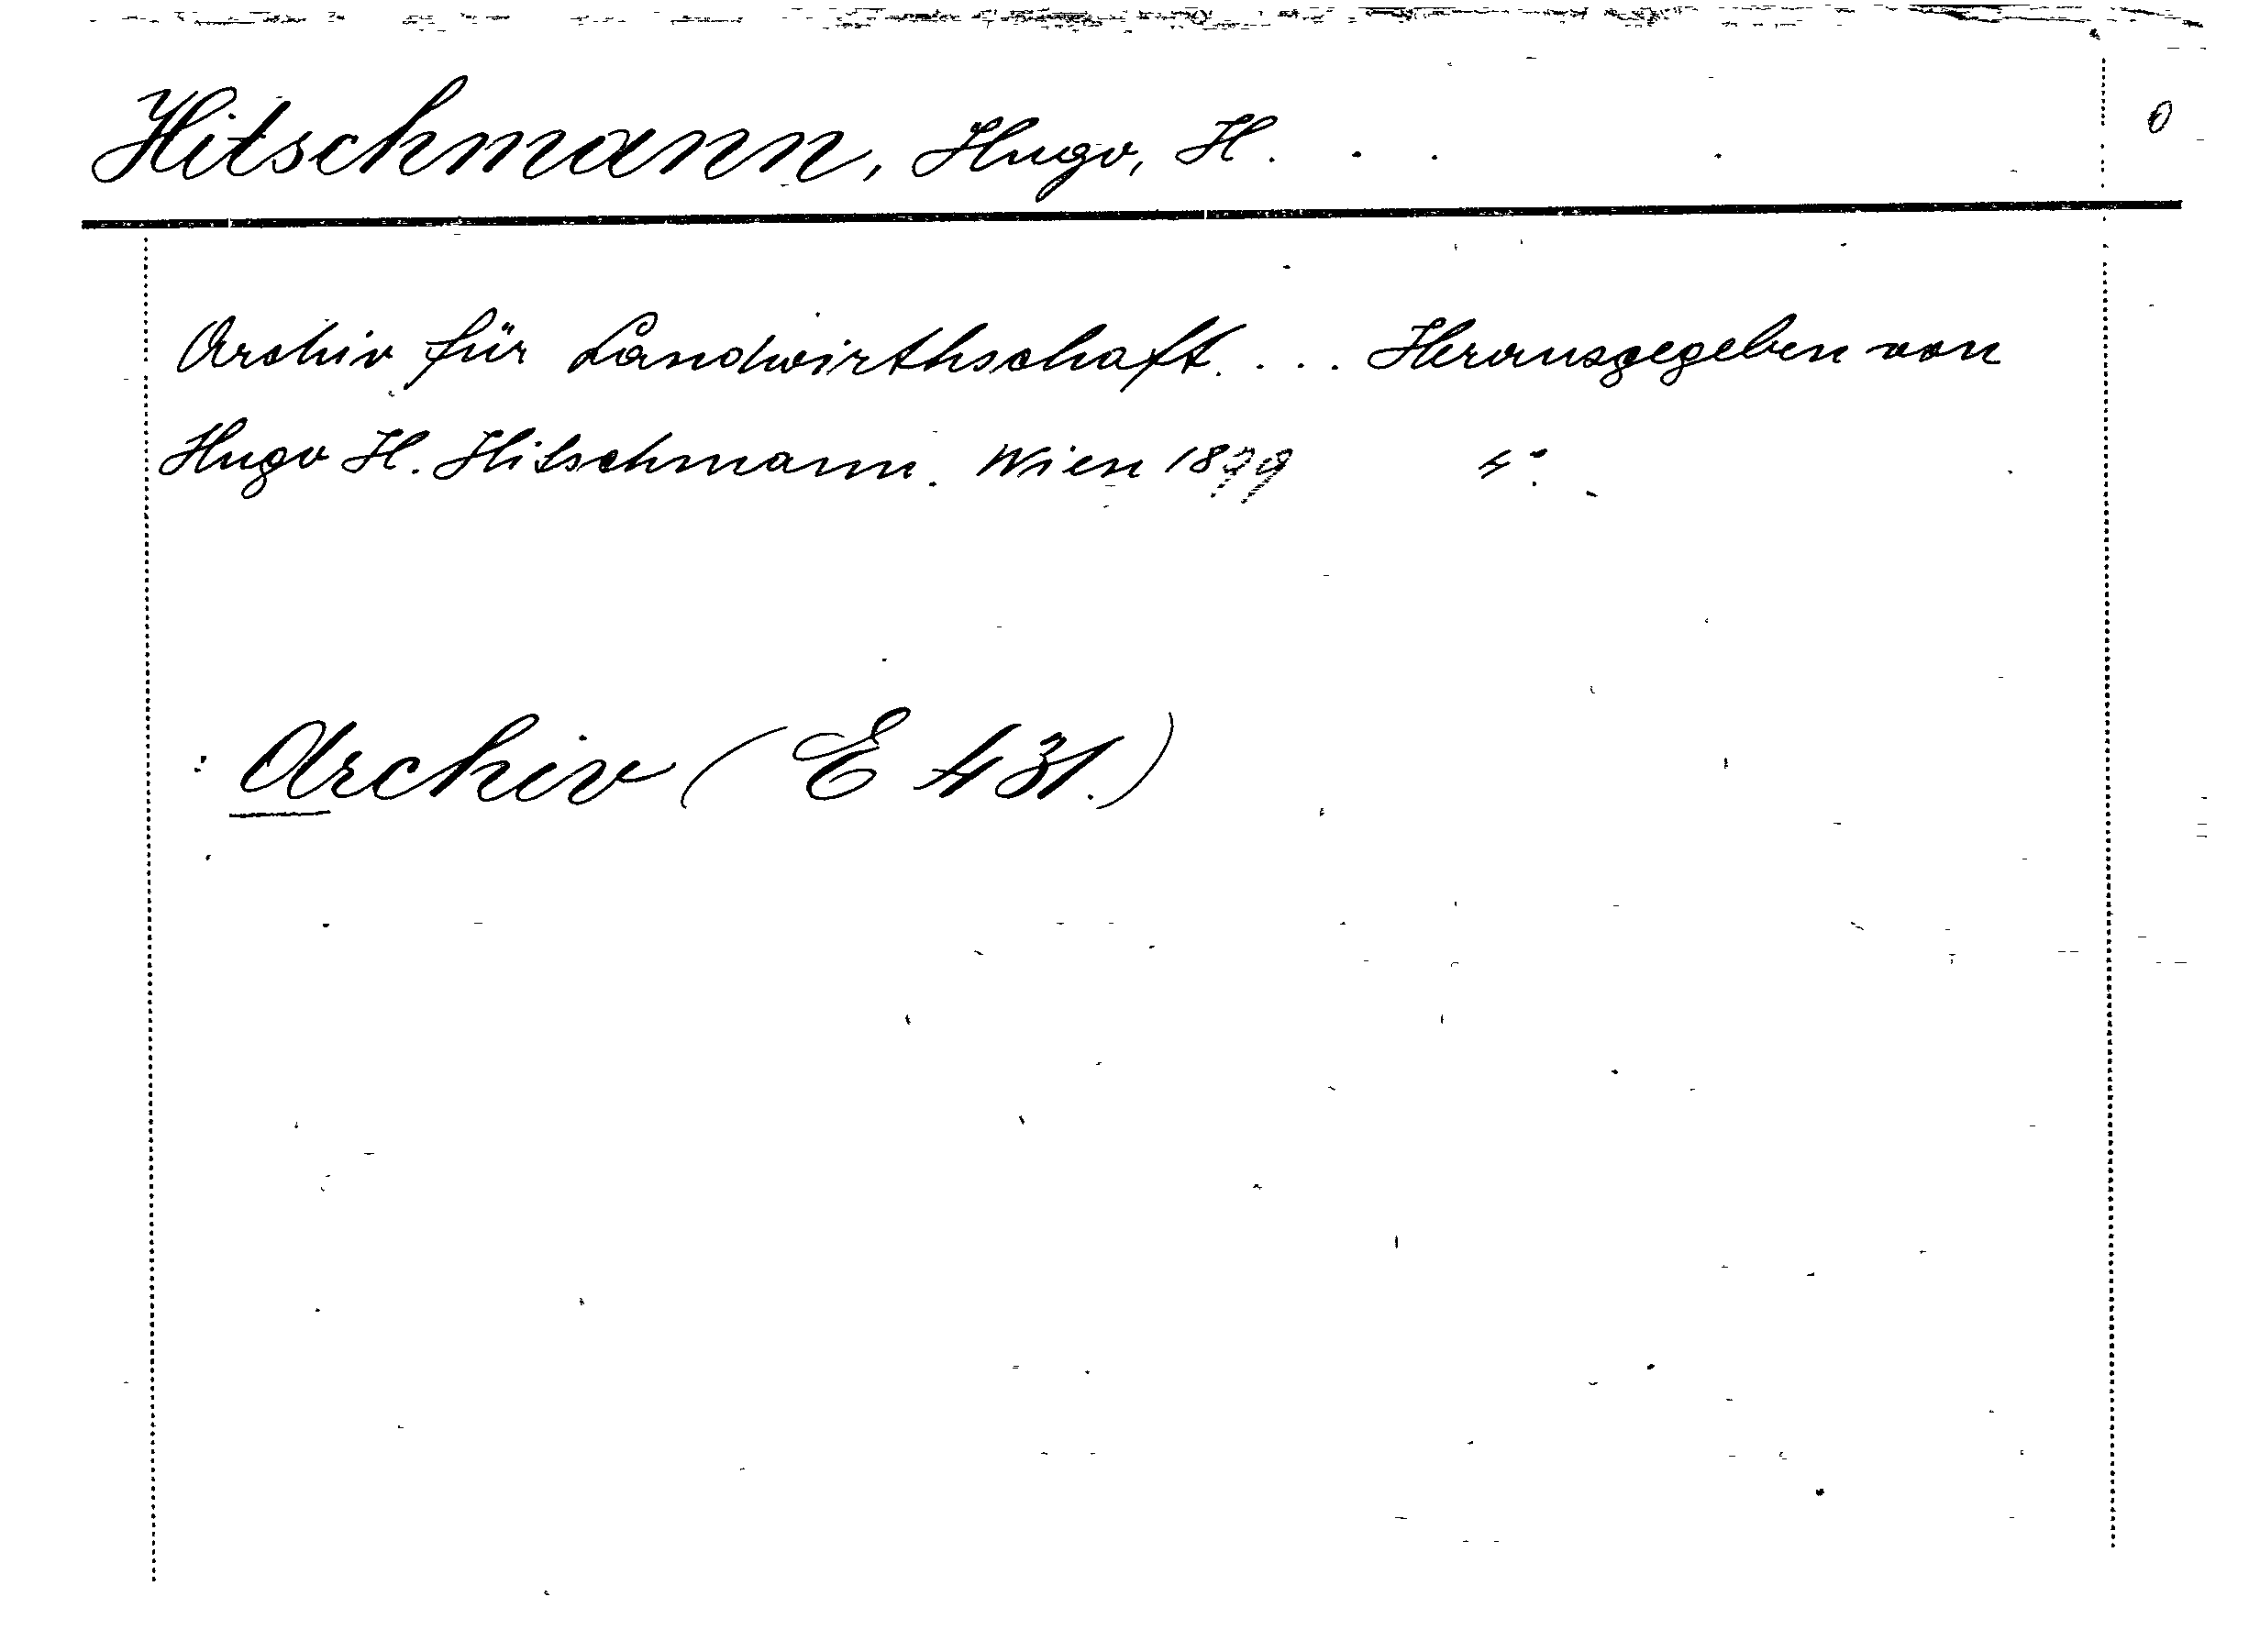 Hitschmann, Hugo, H. 0
Archiv für Landwirthschaft.... Herausgegeben von
Hugo H. Hitschmann. Wien 1879 4°.
: Archiv (E 431.)